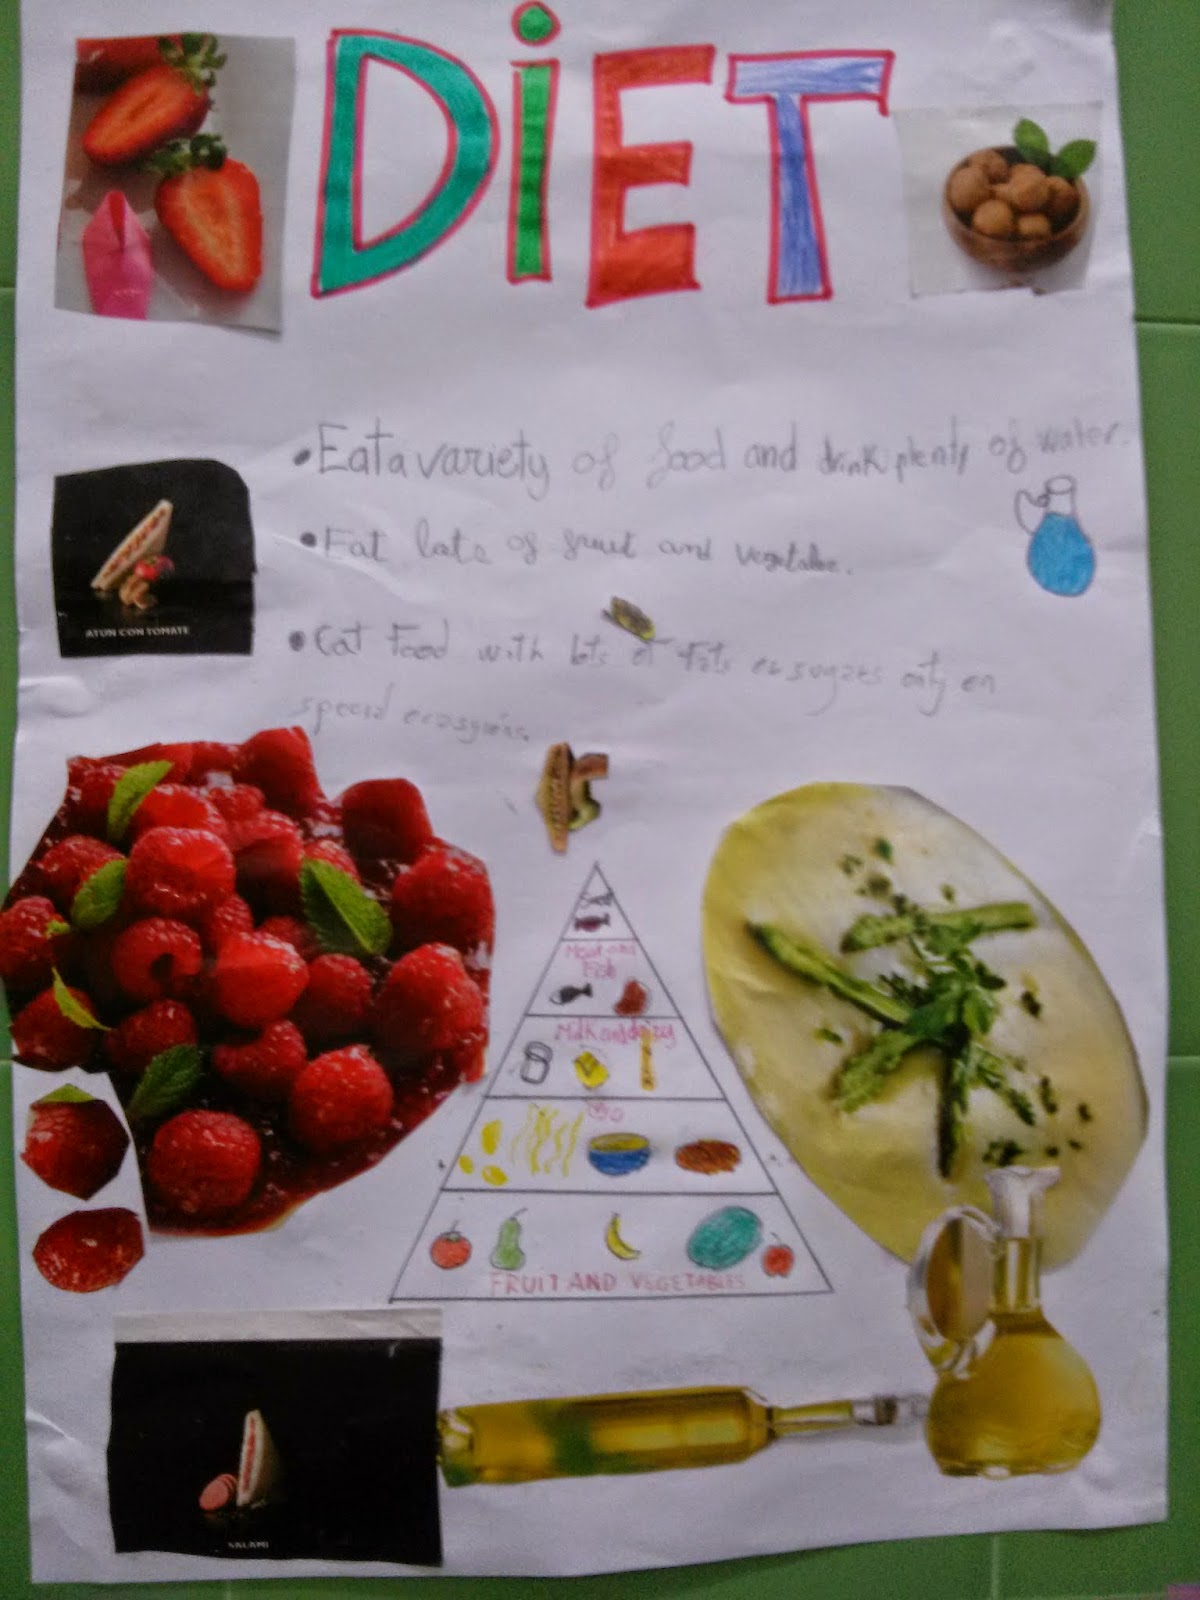 DiET
• Eat a variety of food and drink plenty of water.
• Eat lots of fruit and vegetables.
ATUN CON TOMATE
• Eat Food with lots of Fats or sugars only en
special
Meat and
Fish
Milk and dairy
FRUIT AND VEGETABLES
SALAMI